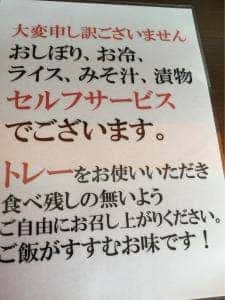 大変申し訳ございません
おしぼり、お冷、
ライス、みそ汁、漬物
セルフサービス
でございます。
トレーをお使いいただき
食べ残しの無いよう
ご自由にお召し上がりください。
ご飯がすすむお味です！